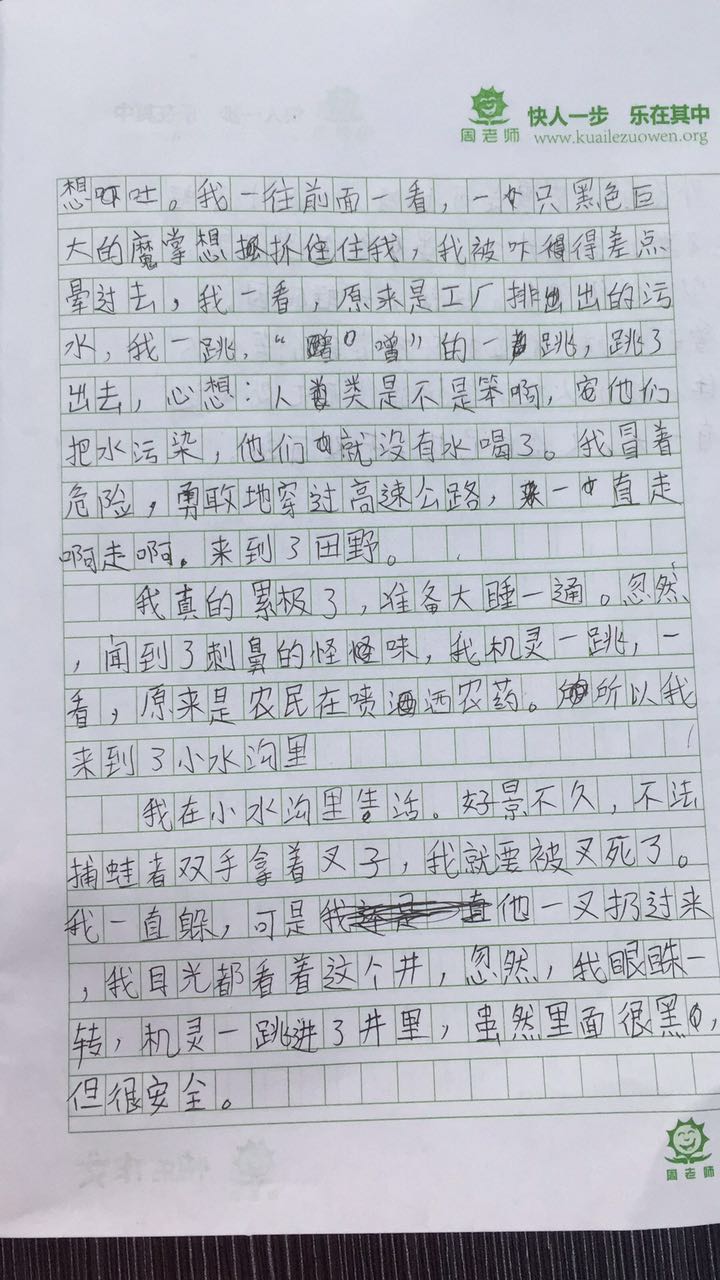 快人一步 乐在其中
周老师 www.kuailezuowen.org
想吐。我一往前面一看，一只黑色巨
大的魔掌想抓住住我，我被吓得得差点
晕过去，我一看，原来是工厂排出出的污
水，我一跳，“噌”的一跳，跳了
出去，心想：人类是不是笨啊，他们
把水污染，他们就没有水喝了。我冒着
危险，勇敢地穿过高速公路，一直走
啊走啊。来到了田野。
我真的累极了，准备大睡一通。忽然
，闻到了刺鼻的怪怪味，我机灵一跳，一
看，原来是农民在喷洒农药。所以我
来到了小水沟里
我在小水沟里生活。好景不久，不法
捕蛙者双手拿着叉子，我就要被叉死了。
我一直躲，可是他一叉扔过来
，我目光都看着这个井，忽然，我眼珠一
转，机灵一跳进了井里，虽然里面很黑，
但很安全。
周老师